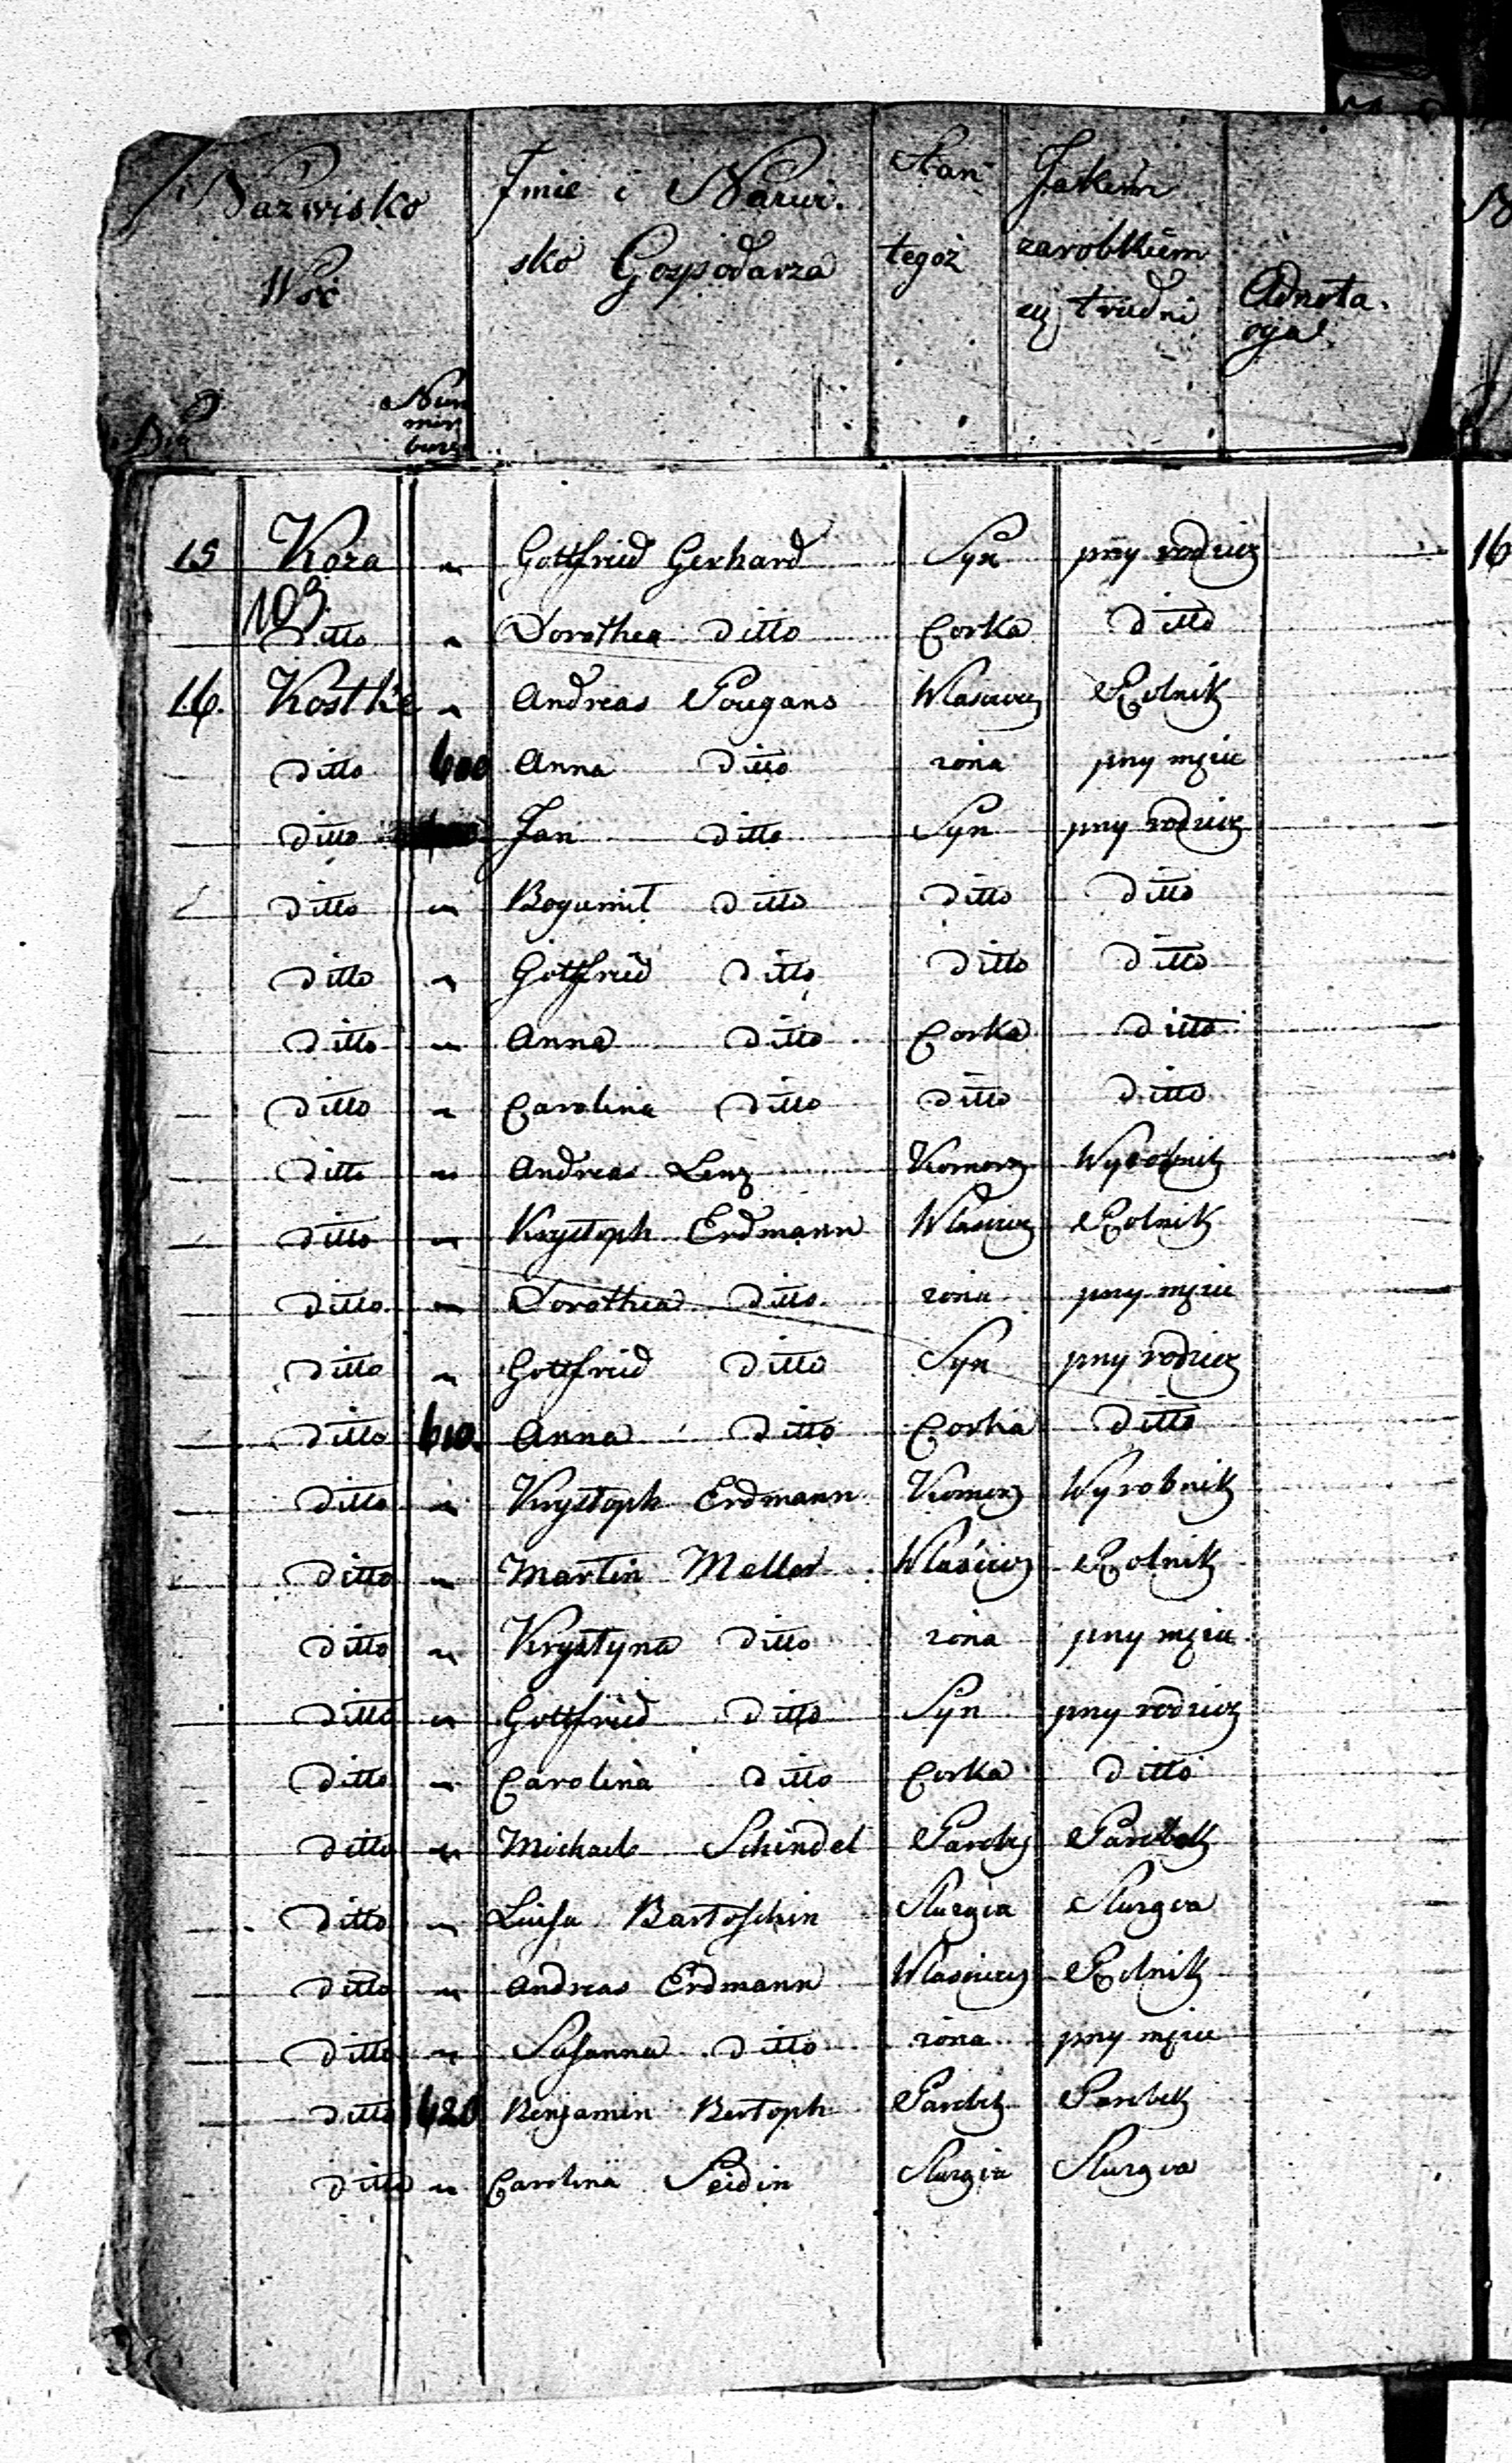 Nazwisko Wśi
Nummer
Imie i Nazwisko Gospodarza
Stan tegoż
Jakiem zarobkiem się trudni
Adnotacya
15 Koza " Gottfried Gerhard Syn przy rodzicz
103
Ditto " Dorothea Ditto Corka Ditto
16. Kostke " Andreas Wlasciciel Rolnik
Ditto 600 Anna Ditto zona przy mężu
Ditto Jan Ditto Syn przy rodzicz
Ditto " Bogumił Ditto Ditto Ditto
Ditto " Gottfried Ditto Ditto Ditto
Ditto " Anna Ditto Corka Ditto
Ditto " Carolina Ditto Ditto Ditto
Ditto " Andreas Lenz Komorz Wyrobnik
Ditto " Krystoph Erdmann Wlasciciel Rolnik
Ditto " Dorothea Ditto zona przy mężu
Ditto " Gottfried Ditto Syn przy rodzicz
Ditto 610. Anna Ditto Corka Ditto
Ditto " Krystoph Erdmann Komorz Wyrobnik
Ditto " Martin Meller Wlaściciel Rolnik
Ditto " Krystyna Ditto zona przy mężu
Ditto " Gottfried Ditto Syn przy rodzicz
Ditto " Carolina Ditto Corka Ditto
Ditto " Michael Schindel Parobek Parobek
Ditto " Luisa Bartoschin Sluzgia Sluzgia
Ditto " Andreas Erdmann Wlasciciel Rolnik
Ditto " Susanna Ditto zona przy mężu
Ditto 620 Benjamin Bertoph Parobek Parobek
Ditto " Carolina Seidin Sluzgia Sluzgia
16